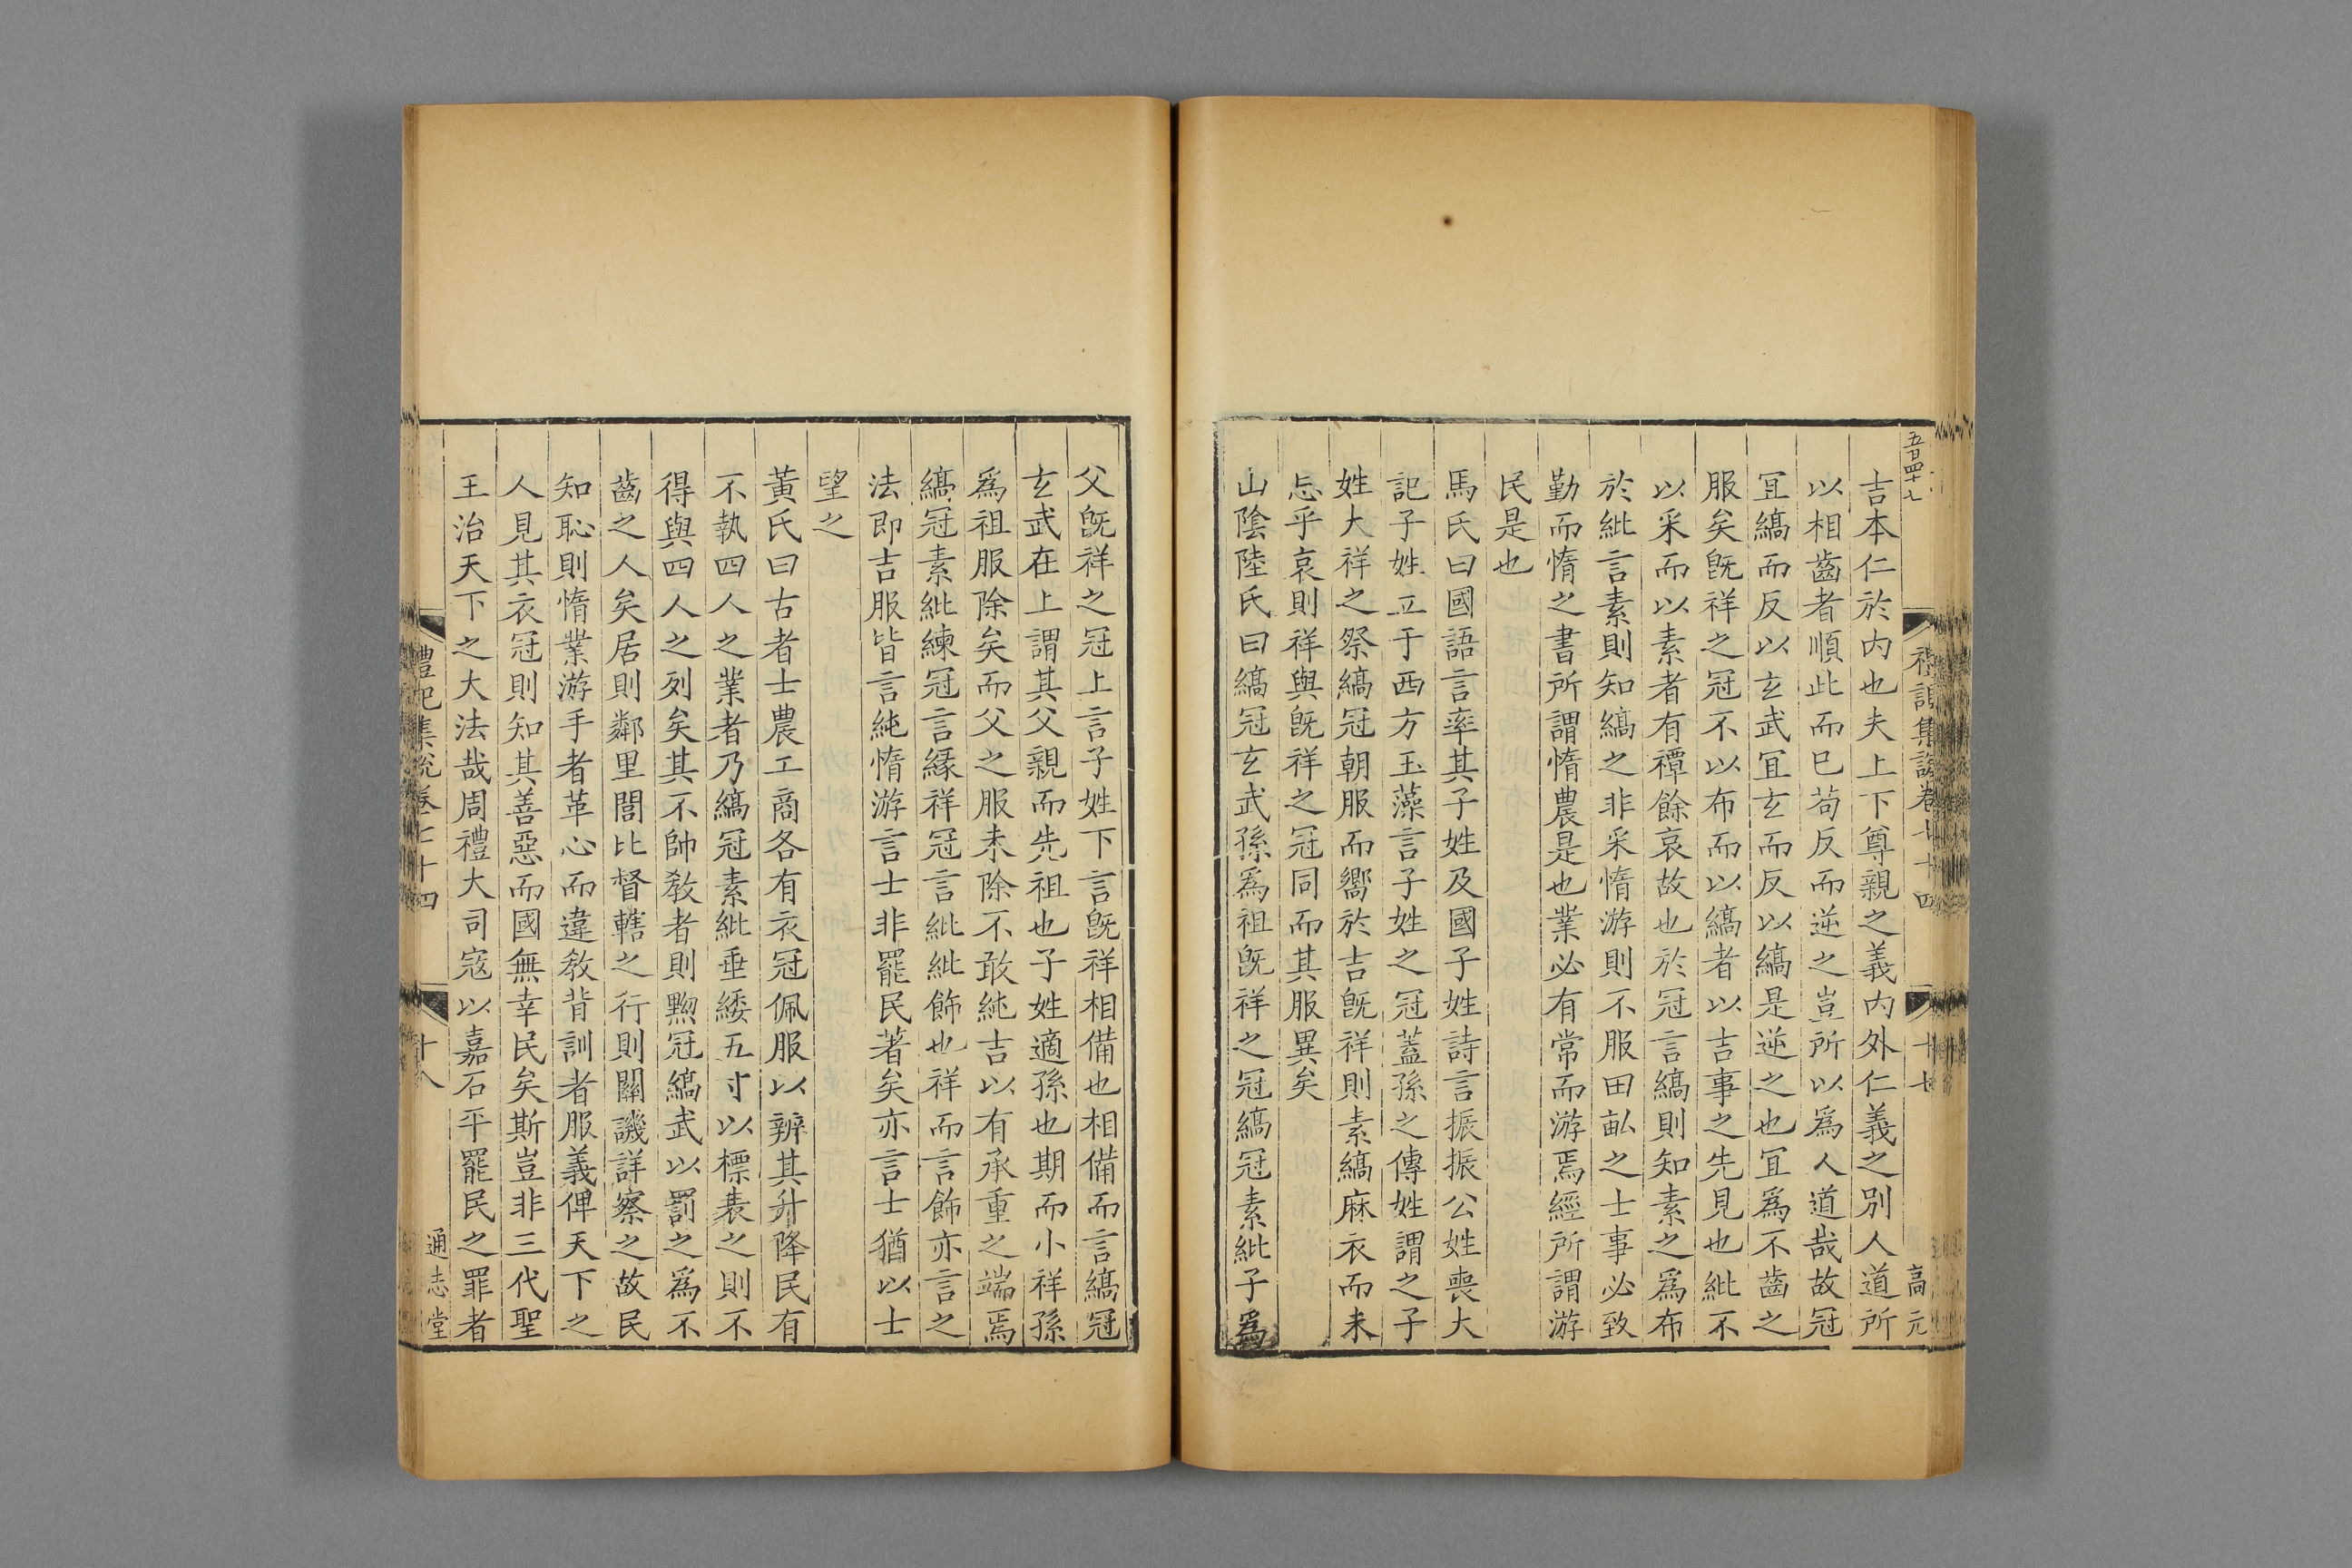 五百四十七
禮記集說卷七十四
十七
高元
吉本仁於內也夫上下尊親之義內外仁義之別人道所
以相齒者順此而巳茍反而逆之豈所以爲人道哉故冠
宜縞而反以玄武宜玄而反以縞是逆之也宜爲不齒之
服矣旣祥之冠不以布而以縞者以吉事之先見也紕不
以采而以素者有禫餘哀故也於冠言縞則知素之爲布
於紕言素則知縞之非采惰游則不服田畝之士事必致
勤而惰之書所謂惰農是也業必有常而游焉經所謂游
民是也
馬氏曰國語言率其子姓及國子姓詩言振振公姓喪大
記子姓立于西方玉藻言子姓之冠蓋孫之傳姓謂之子
姓大祥之祭縞冠朝服而嚮於吉旣祥則素縞麻衣而未
忘乎哀則祥與旣祥之冠同而其服異矣
山陰陸氏曰縞冠玄武孫爲祖旣祥之冠縞冠素紕子爲
父旣祥之冠上言子姓下言旣祥相備也相備而言縞冠
玄武在上謂其父親而先祖也子姓適孫也期而小祥孫
爲祖服除矣而父之服未除不敢純吉以有承重之端焉
縞冠素紕練冠言緣祥冠言紕紕飾也祥而言飾亦言之
法即吉服皆言純惰游言士非罷民著矣亦言士猶以士
望之
黃氏曰古者士農工商各有衣冠佩服以辨其升降民有
不執四人之業者乃縞冠素紕垂緌五寸以標表之則不
得與四人之列矣其不帥敎者則黜冠縞武以罰之爲不
齒之人矣居則鄰里閭比督轄之行則關譏詳察之故民
知恥則惰業游手者革心而違敎背訓者服義俾天下之
人見其衣冠則知其善惡而國無幸民矣斯豈非三代聖
王治天下之大法哉周禮大司寇以嘉石平罷民之罪者
禮記集說卷七十四
十八
通志堂